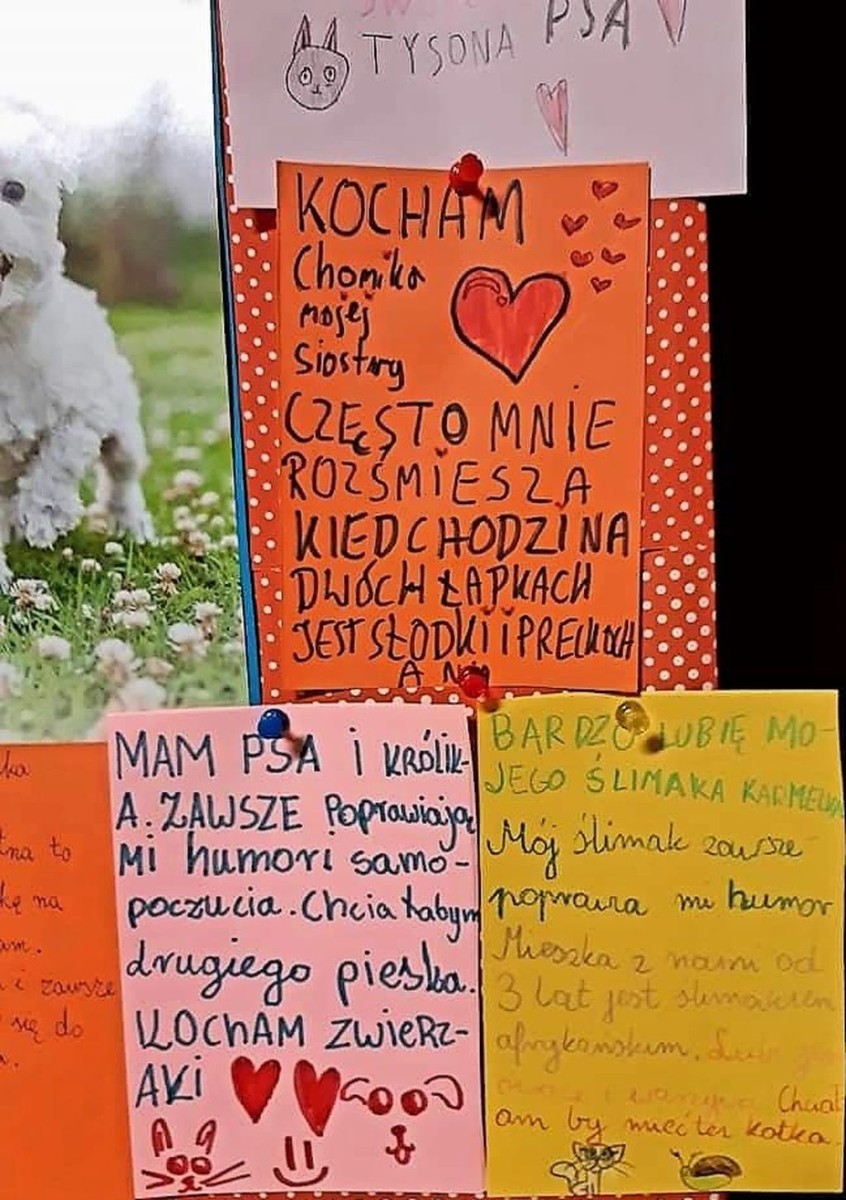 TYSONA PSA
KOCHAM
Chomika
mojej
Siostry
CZĘSTO MNIE
ROZŚMIESZA
KIEDCHODZI NA
DWÓCH ŁAPKACH
JEST SŁODKI I
MAM PSA i KRÓLIK-
A. ZAWSZE Poprawiają
Mi humor i samo-
poczucia. Chciałabym
drugiego pieska.
KOChAM ZWIERZ-
AKi
BARDZO LUBIĘ MO-
JEGO ŚLIMAKA KARMELKA
Mój ślimak zawsze
poprawia mi humor
Mieszka z nami od
3 lat jest ślimakiem
afrykańskim.
i warzywa Chciał
am by mieć też kotka.
ka
na to
kę na
am.
i zawsze
się do